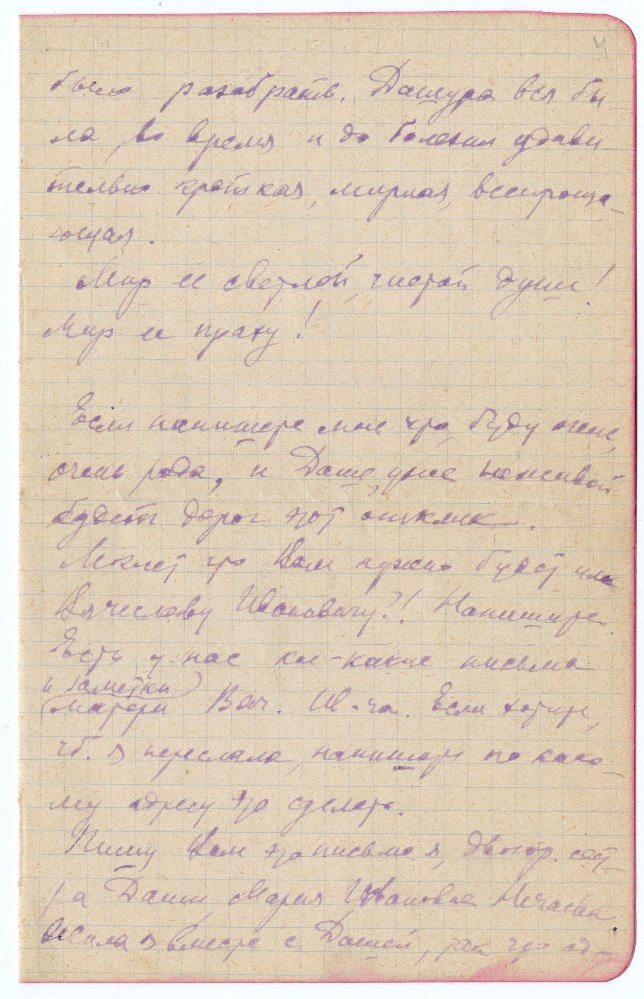 4
было разобрать. Дашура вся бы
ла во время и до болезни удиви-
тельно кроткая, мирная, всепроща-
ющая.
Мир ее светлой, чистой душе!
Мир ее праху!
Если напишете мне что, буду очень,
очень рада, и Даше, уже неживой
будет дорог этот отклик.
Может что Вам нужно будет или
Вячеславу Ивановичу?! Напишите.
Есть у нас кое-какие письма
и заметки
(матери Вяч. Ив-ча. Если хотите,
чт. я переслала, напишите по како-
му адресу это сделать.
Пишу Вам это письмо я, двоюр. сест-
ра Даши Мария Ивановна
жила я вместе с Дашей, так что од-